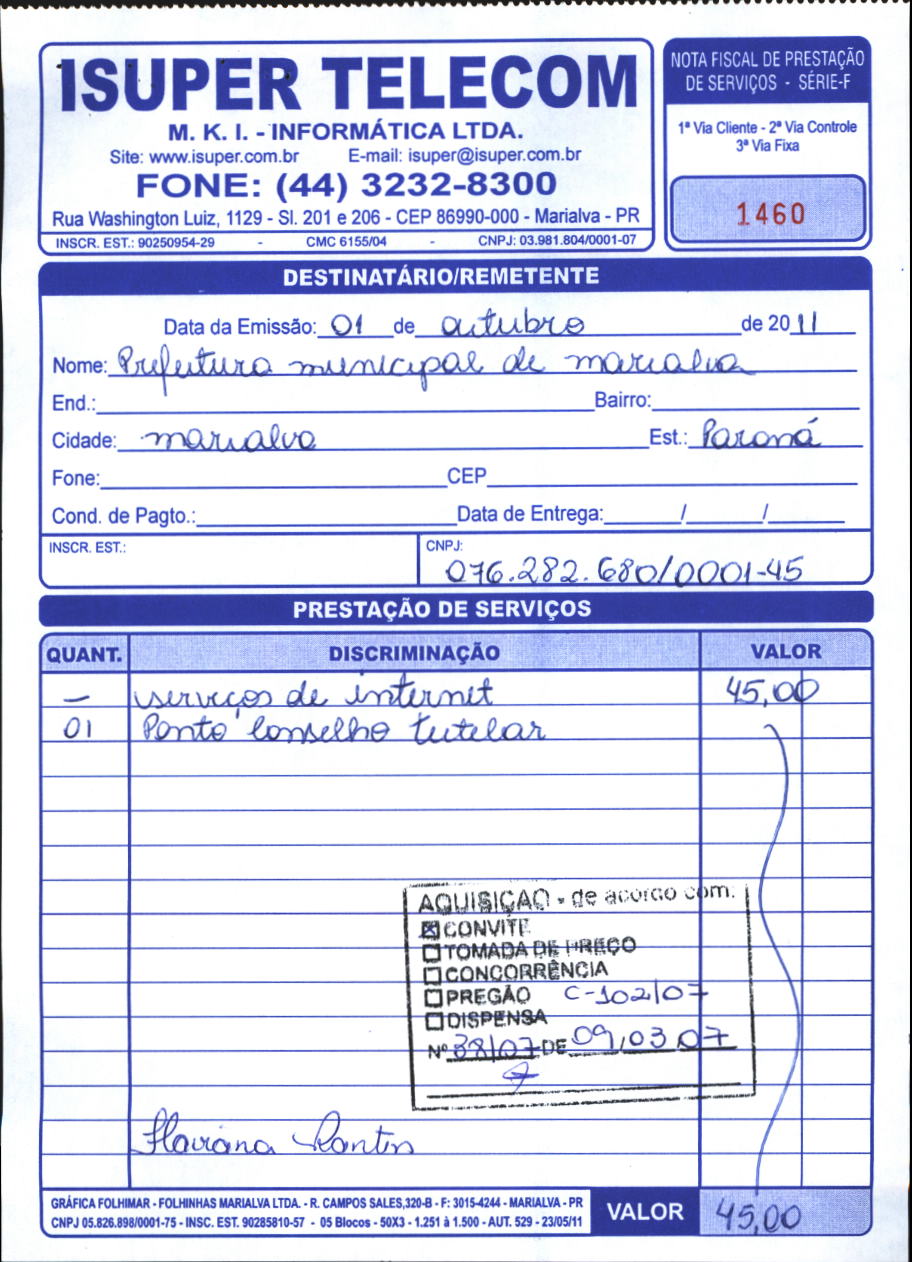 ISUPER TELECOM
M. K. I. - INFORMÁTICA LTDA.
Site: www.isuper.com.br E-mail: isuper@isuper.com.br
FONE: (44) 3232-8300
Rua Washington Luiz, 1129 - Sl. 201 e 206 - CEP 86990-000 - Marialva - PR
INSCR. EST.: 90250954-29 - CMC 6155/04 - CNPJ: 03.981.804/0001-07
NOTA FISCAL DE PRESTAÇÃO
DE SERVIÇOS - SÉRIE-F
1ª Via Cliente - 2ª Via Controle
3ª Via Fixa
1460
DESTINATÁRIO/REMETENTE
Data da Emissão: 01 de outubro de 2011
Nome: Prefeitura municipal de marialva
End.: Bairro:
Cidade: marialva Est.: Paraná
Fone: CEP
Cond. de Pagto.: Data de Entrega: / /
INSCR. EST.: CNPJ:
076.282.680/0001-45
PRESTAÇÃO DE SERVIÇOS
QUANT. DISCRIMINAÇÃO VALOR
— serviços de internet 45,00
01 Ponto Conselho tutelar
AQUISIÇÃO - de acordo com:
CONVITE
TOMADA DE PREÇO
CONCORRÊNCIA
PREGÃO C-102/07
DISPENSA
Nº 38/07 DE 09/03/07
GRÁFICA FOLHIMAR - FOLHINHAS MARIALVA LTDA. - R. CAMPOS SALES,320-B - F: 3015-4244 - MARIALVA - PR
CNPJ 05.826.898/0001-75 - INSC. EST. 90285810-57 - 05 Blocos - 50X3 - 1.251 à 1.500 - AUT. 529 - 23/05/11
VALOR 45,00